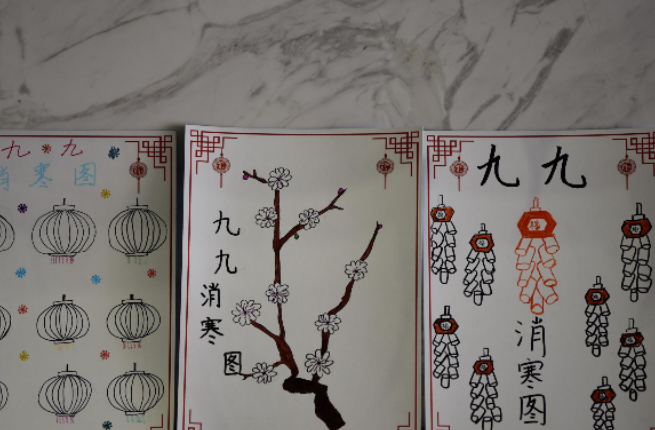 九九
消寒图
九九消寒图
九九
消寒图